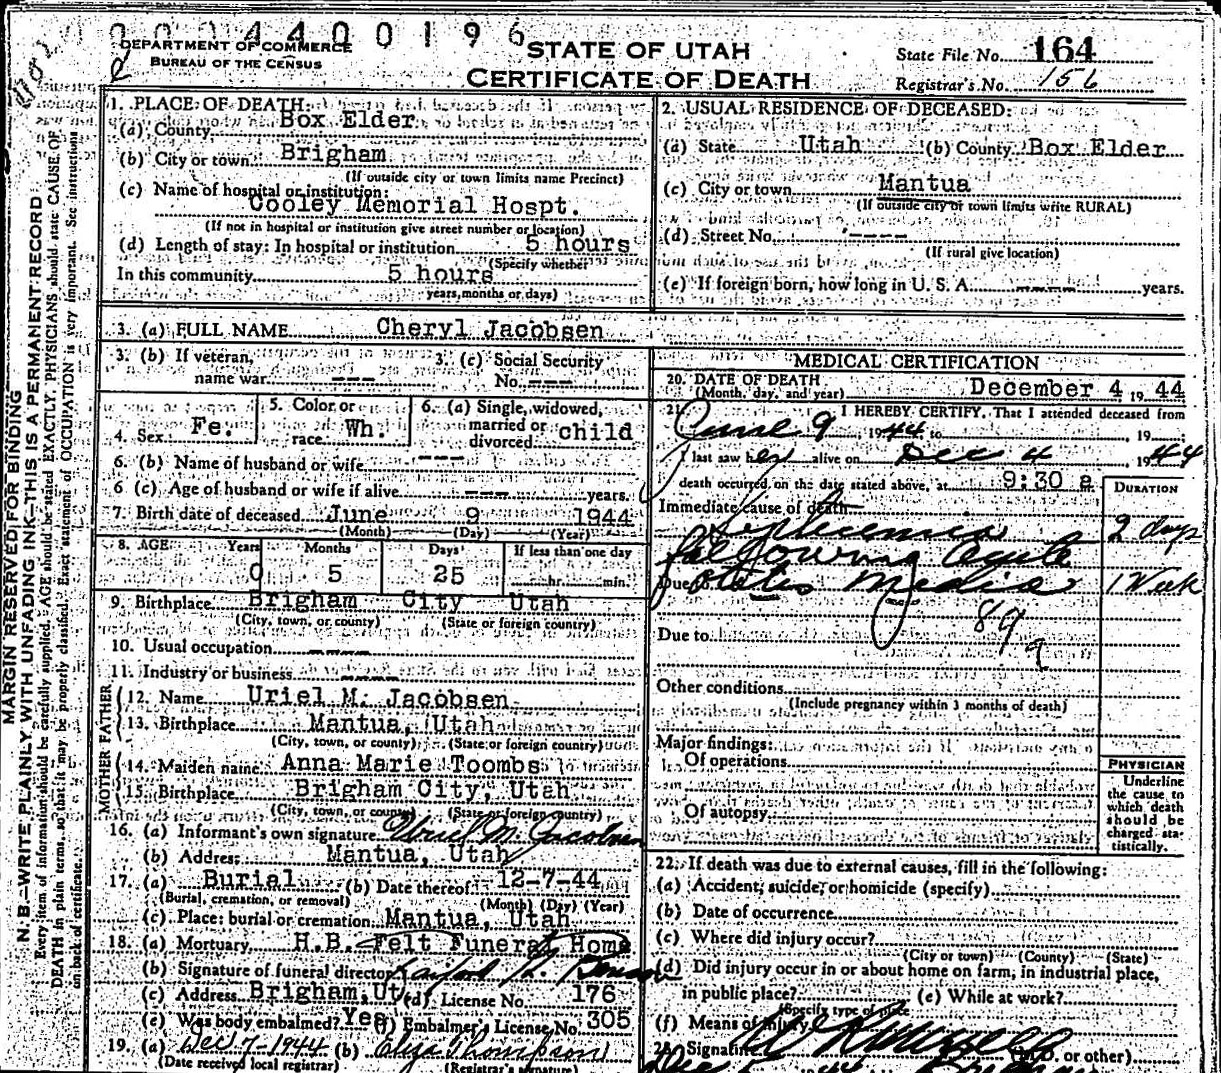 0 0 4 4 0 0 1 9 6
DEPARTMENT OF COMMERCE
BUREAU OF THE CENSUS
STATE OF UTAH
CERTIFICATE OF DEATH
State File No. 164
Registrar's No. 156
MARGIN RESERVED FOR BINDING
N. B.—WRITE PLAINLY WITH UNFADING INK—THIS IS A PERMANENT RECORD
Every item of information should be carefully supplied. AGE should be stated EXACTLY. PHYSICIANS should state CAUSE OF
DEATH in plain terms, so that it may be properly classified. Exact statement of OCCUPATION is very important. See instructions
on back of certificate.
1. PLACE OF DEATH:
(a) County Box Elder
(b) City or town Brigham
(If outside city or town limits name Precinct)
(c) Name of hospital or institution:
Cooley Memorial Hospt.
(If not in hospital or institution give street number or location)
(d) Length of stay: In hospital or institution 5 hours
(Specify whether
In this community 5 hours
years, months or days)
2. USUAL RESIDENCE OF DECEASED:
(a) State Utah (b) County Box Elder
(c) City or town Mantua
(If outside city or town limits write RURAL)
(d) Street No. ----
(If rural give location)
(e) If foreign born, how long in U. S. A. ---- years.
3. (a) FULL NAME Cheryl Jacobsen
3. (b) If veteran, name war --- 3. (c) Social Security No. ---
4. Sex Fe. 5. Color or race Wh. 6. (a) Single, widowed, married or divorced child
6. (b) Name of husband or wife ---
6 (c) Age of husband or wife if alive --- years.
7. Birth date of deceased June 9 1944
(Month) (Day) (Year)
8. AGE Years Months Days If less than one day
0 5 25 hr. min.
9. Birthplace Brigham City Utah
(City, town, or county) (State or foreign country)
10. Usual occupation ----
11. Industry or business ----
FATHER
12. Name Uriel M. Jacobsen
13. Birthplace Mantua, Utah
(City, town, or county) (State or foreign country)
MOTHER
14. Maiden name Anna Marie Toombs
15. Birthplace Brigham City, Utah
(City, town, or county) (State or foreign country)
16. (a) Informant's own signature Uriel M. Jacobsen
(b) Address Mantua, Utah
17. (a) Burial (b) Date thereof 12-7-44
(Burial, cremation, or removal) (Month) (Day) (Year)
(c) Place: burial or cremation Mantua, Utah
18. (a) Mortuary H.B. Felt Funeral Home
(b) Signature of funeral director
(c) Address Brigham, Ut (d) License No. 176
(e) Was body embalmed? Yes (f) Embalmer's License No. 305
19. (a) Dec 7-1944 (b) Eliza Thompson
(Date received local registrar) (Registrar's signature)
MEDICAL CERTIFICATION
20. DATE OF DEATH
(Month, day, and year) December 4, 1944
21. I HEREBY CERTIFY, That I attended deceased from
June 9, 1944 to , 19
I last saw her alive on Dec 4 1944
death occurred on the date stated above, at 9:30 a
DURATION
Immediate cause of death
Septicemia 2 days
following acute
Due to otitis media 1 Week
89a
Due to
Other conditions
(Include pregnancy within 3 months of death)
Major findings:
Of operations
Of autopsy
PHYSICIAN
Underline
the cause to
which death
should be
charged sta-
tistically.
22. If death was due to external causes, fill in the following:
(a) Accident, suicide, or homicide (specify)
(b) Date of occurrence
(c) Where did injury occur?
(City or town) (County) (State)
(d) Did injury occur in or about home on farm, in industrial place,
in public place? (e) While at work?
(Specify type of place)
(f) Means of injury
23. Signature (M.D. or other)